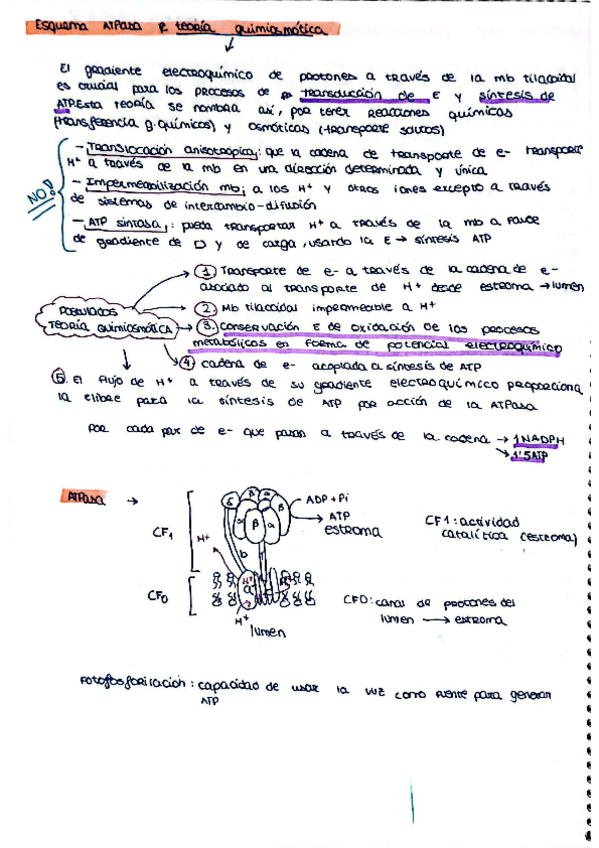 Esquema ATPasa y teoría quimiosmótica
↓
El gradiente electroquímico de protones a través de la mb tilacoidal
es crucial para los procesos de transducción de E y síntesis de
ATP. Esta teoría se nombra así, por tener reacciones químicas
(transferencia g. químicos) y osmóticas (transporte solutos)
NO!
- Translocación anisotrópica: que la cadena de transporte de e- transporte
H+ a través de la mb en una dirección determinada y única
- Impermeabilización mb: a los H+ y otros iones excepto a través
de sistemas de intercambio-difusión
- ATP sintasa: pueda transportar H+ a través de la mb a favor
de gradiente de [] y de carga, usando la E → síntesis ATP
POSTULADOS
TEORÍA QUIMIOSMÓTICA
1. Transporte de e- a través de la cadena de e-
asociado al transporte de H+ desde estroma → lumen
2. Mb tilacoidal impermeable a H+
3. conservación E de oxidación de los procesos
metabólicos en forma de potencial electroquímico
4. cadena de e- acoplada a síntesis de ATP
5. El flujo de H+ a través de su gradiente electroquímico proporciona
la elibre para la síntesis de ATP por acción de la ATPasa
Por cada par de e- que pasan a través de la cadena → 1NADPH
→ 1'5ATP
ATPasa →
CF1
δ β α β
α β α
ADP + Pi
ATP
estroma
H+
b
CF0
H+
a
H+
lumen
CF1: actividad
catalítica (estroma)
CF0: canal de protones del
lumen → estroma
Fotofosforilación: capacidad de usar la luz como fuente para generar
ATP